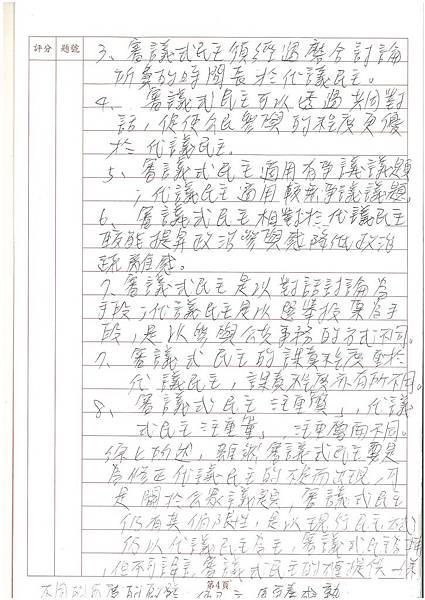 評分 題號
3、審議式民主須經過整合討論
所費的時間長於代議民主。
4、審議式民主可以透過共同對
話，促使公民參與的程度更優
於代議民主.
5、審議式民主適用有爭議議題
；代議民主適用較無爭議議題。
6、審議式民主相對於代議民主
較能提昇政治參與感降低政治
疏離感。
7.審議式民主是以對話討論為
手段；代議民主是以選舉投票為手
段，是以參與公共事務的方式不同。
7、審議式民主的課責程度對於
代議民主，課責程度亦有所不同。
8、審議式民主注重質」，代議
式民主注重量」，注重層面不同。
綜上所述，審議式民主是
為修正代議民主的而出現，可
是關於公眾議題，審議式民主
仍有其侷限性，是以現行民主
仍以代議民主為主，審議式民主
，但不可諱言，審議式民主的提供一
第4頁
不同的